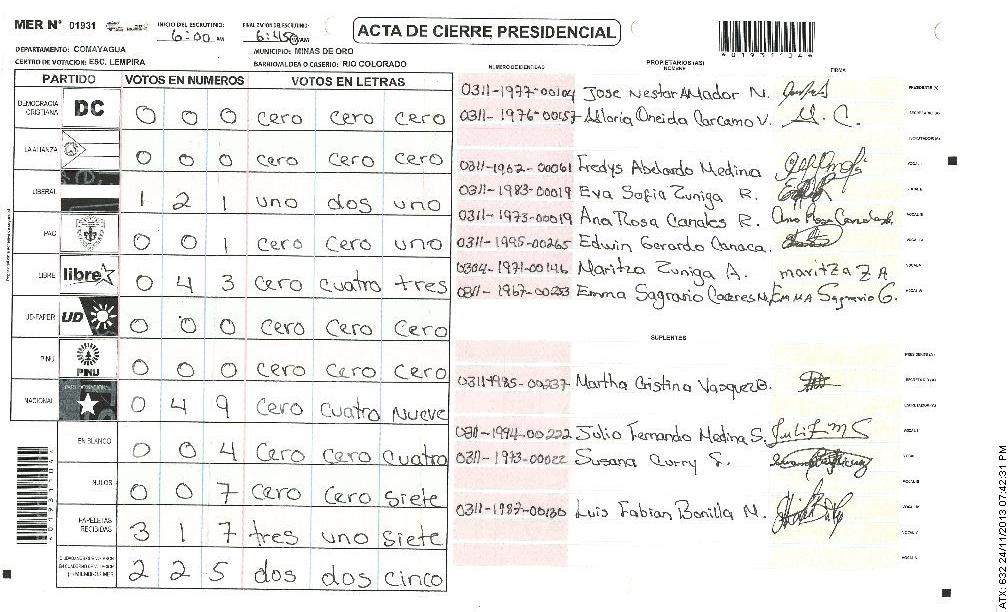 MER N° 01931
INICIO DEL ESCRUTINIO:
6:00 PM
FINALIZACION DEL ESCRUTINIO:
6:45
ACTA DE CIERRE PRESIDENCIAL
DEPARTAMENTO: COMAYAGUA
MUNICIPIO: MINAS DE ORO
CENTRO DE VOTACION: ESC. LEMPIRA
BARRIO/ALDEA O CASERIO: RIO COLORADO
PARTIDO VOTOS EN NUMEROS VOTOS EN LETRAS
DEMOCRACIA CRISTIANA DC 0 0 0 cero cero cero
LA ALIANZA 0 0 0 cero cero cero
LIBERAL 1 2 1 uno dos uno
PAC 0 0 1 cero cero uno
LIBRE libre 0 4 3 cero cuatro tres
UD-FAPER UD 0 0 0 cero cero cero
PINU PINU 0 0 0 cero cero cero
NACIONAL 0 4 9 cero cuatro nueve
EN BLANCO 0 0 4 cero cero cuatro
NULOS 0 0 7 cero cero siete
PAPELETAS RECIBIDAS 3 1 7 tres uno siete
2 2 5 dos dos cinco
NUMERO DE IDENTIDAD PROPIETARIOS (AS) NOMBRE FIRMA
0311-1977-00104 Jose Nestor Amador N.
0311-1976-00157 Gloria Oneida Carcamo V.
0311-1962-00061 Fredys Abelardo Medina
0311-1983-00019 Eva Sofia Zuniga R.
0311-1973-00019 Ana Rosa Canales R.
0311-1995-00265 Edwin Gerardo Canaca.
0304-1971-00146 Maritza Zuniga A. maritza Z A
0311-1967-00253 Emma Sagrario Caceres N. Emma Sagrario C.
SUPLENTES
0311-1985-00237 Martha Cristina Vasquez B.
0311-1994-00222 Julio Fernando Medina S.
0311-1973-00022 Susana Curry S.
0311-1987-00130 Luis Fabian Bonilla M.
ATX: 632 24/11/2013 07:42:31 PM